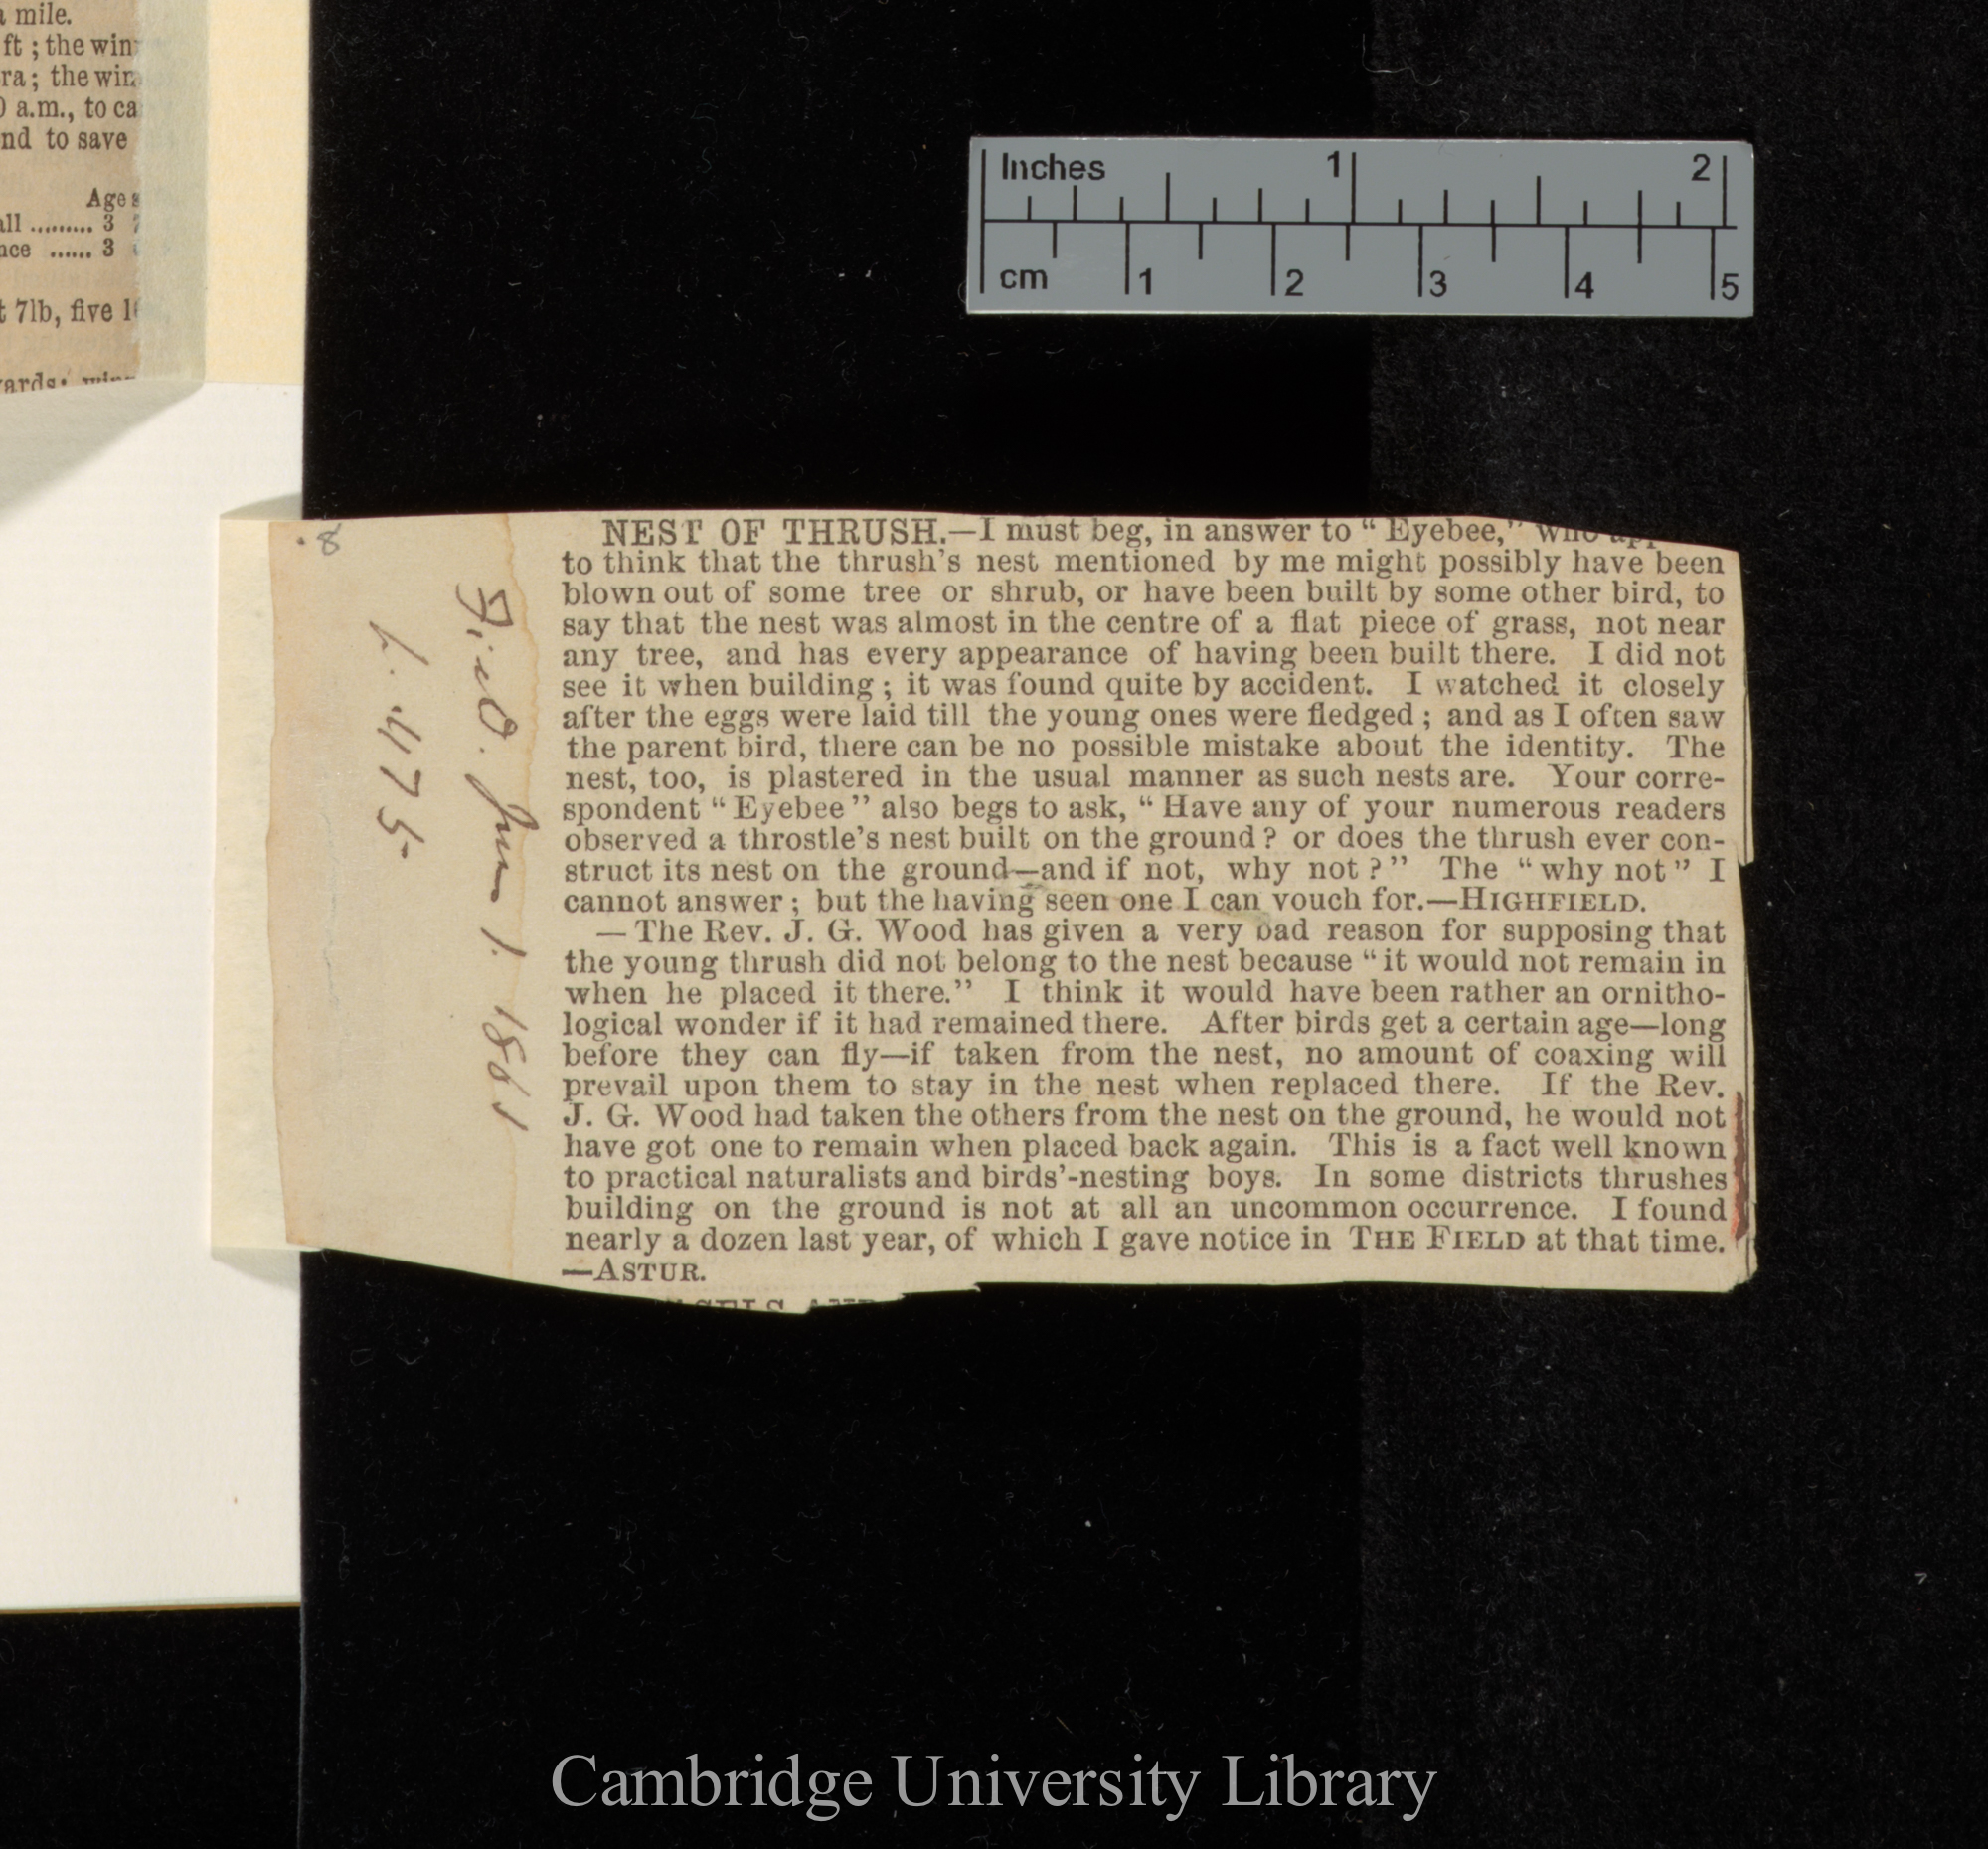 a mile.
ft ; the win
ra ; the win
a.m., to ca
nd to save
Age
all ......... 3
nce ...... 3
t 7lb, five
Inches 1 2
cm 1 2 3 4 5
8
Field. June 1. 1861
p. 475
NEST OF THRUSH.—I must beg, in answer to "Eyebee," who
to think that the thrush's nest mentioned by me might possibly have been
blown out of some tree or shrub, or have been built by some other bird, to
say that the nest was almost in the centre of a flat piece of grass, not near
any tree, and has every appearance of having been built there. I did not
see it when building ; it was found quite by accident. I watched it closely
after the eggs were laid till the young ones were fledged ; and as I often saw
the parent bird, there can be no possible mistake about the identity. The
nest, too, is plastered in the usual manner as such nests are. Your corre-
spondent "Eyebee" also begs to ask, "Have any of your numerous readers
observed a throstle's nest built on the ground ? or does the thrush ever con-
struct its nest on the ground—and if not, why not ?" The "why not" I
cannot answer ; but the having seen one I can vouch for.—HIGHFIELD.
— The Rev. J. G. Wood has given a very bad reason for supposing that
the young thrush did not belong to the nest because "it would not remain in
when he placed it there." I think it would have been rather an ornitho-
logical wonder if it had remained there. After birds get a certain age—long
before they can fly—if taken from the nest, no amount of coaxing will
prevail upon them to stay in the nest when replaced there. If the Rev.
J. G. Wood had taken the others from the nest on the ground, he would not
have got one to remain when placed back again. This is a fact well known
to practical naturalists and birds'-nesting boys. In some districts thrushes
building on the ground is not at all an uncommon occurrence. I found
nearly a dozen last year, of which I gave notice in THE FIELD at that time.
—ASTUR.
Cambridge University Library